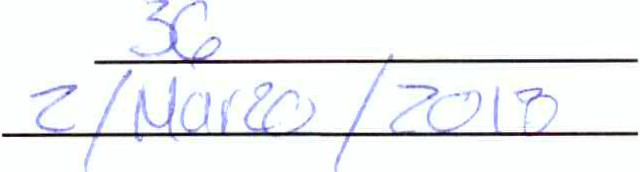 36
2/Marzo/2018